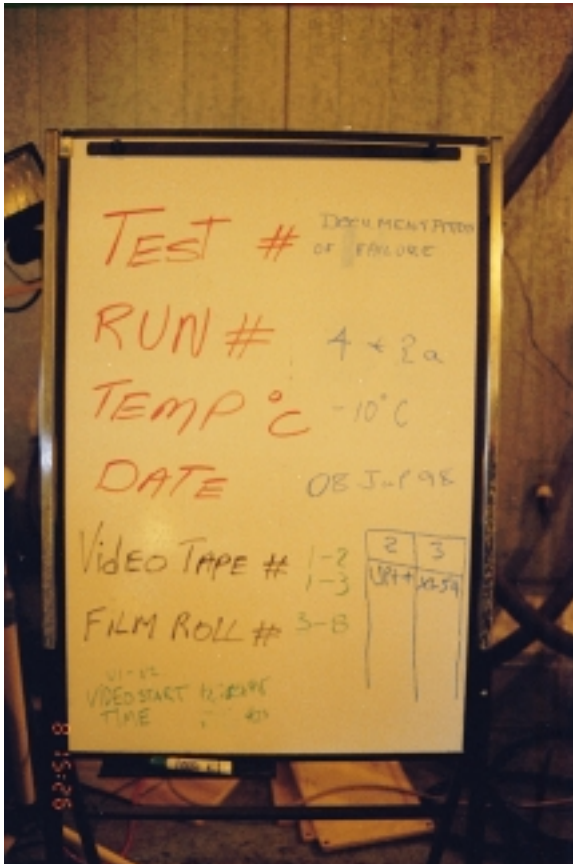 TEST # DOCUMENTATION
OF FAILURE
RUN # 4 + 2a
TEMP °C -10°C
DATE 08 98
VIDEO TAPE # 1-2
1-3
2 3
FILM ROLL # 3-B
VIDEO START
TIME
8 15:26